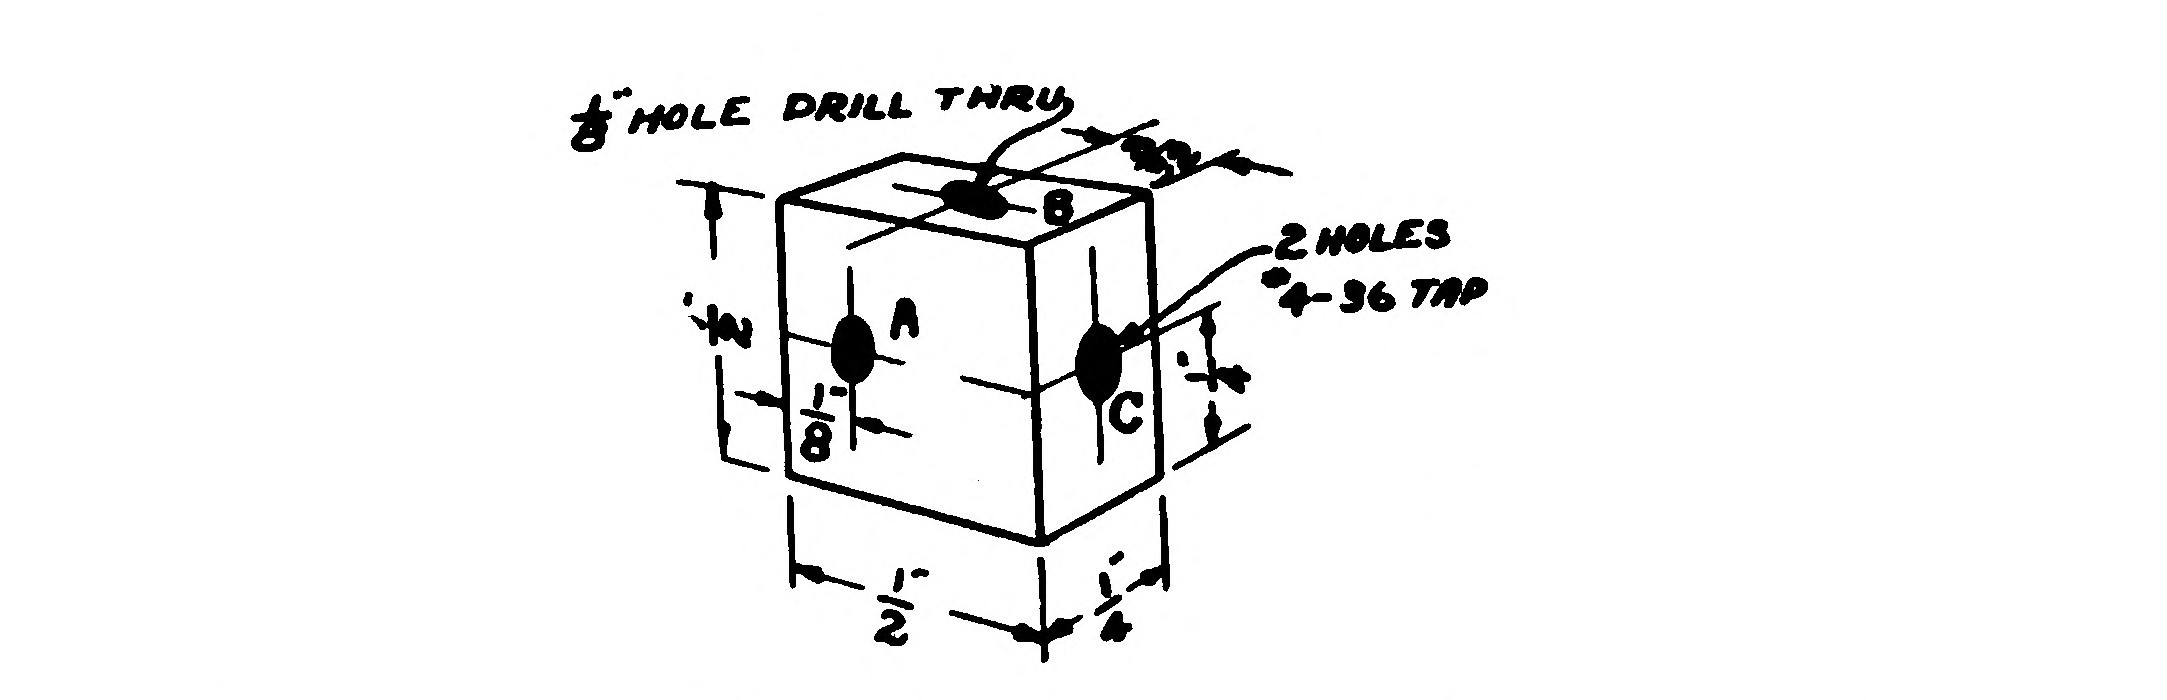 1/8" HOLE DRILL THRU
B
2 HOLES
#4-36 TAP
A
1/2"
1/8"
1/4"
C
1/2"
1/4"